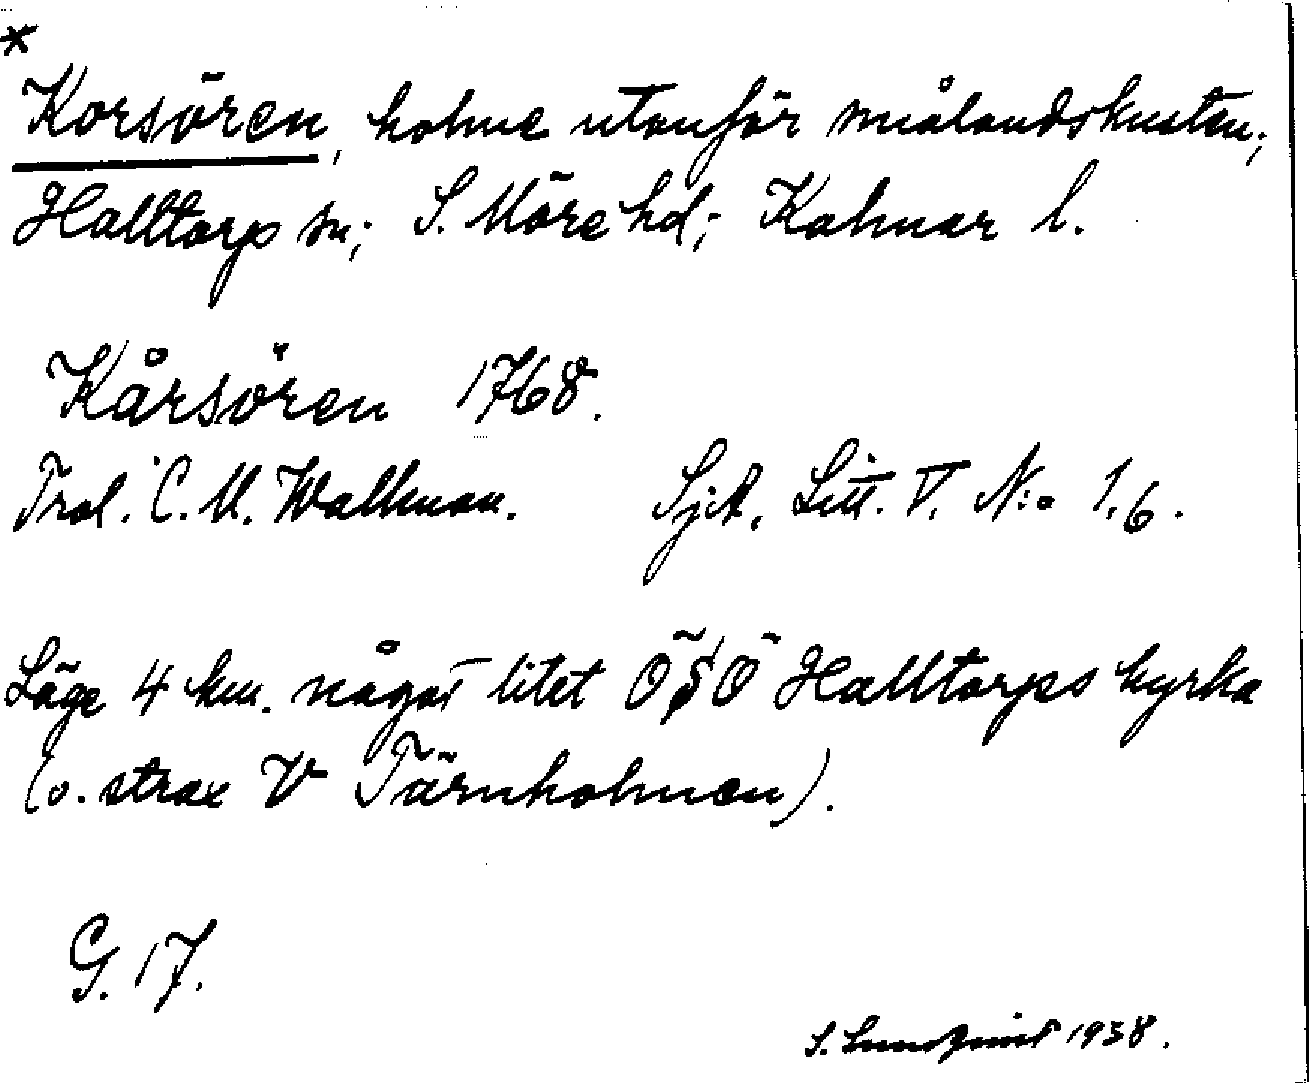 *
Korsören, holme utanför smålandskusten;
Halltorp sn; S. Möre hd; Kalmar l.
Kårsören 1768.
Trol. C. M. Wallman. SjA, Litt. V. N:o 1,6.
Läge 4 km. något litet ÖSÖ Halltorps kyrka
(o. strax V Tärnholmen).
G. 17.
S. Lundquist 1938.